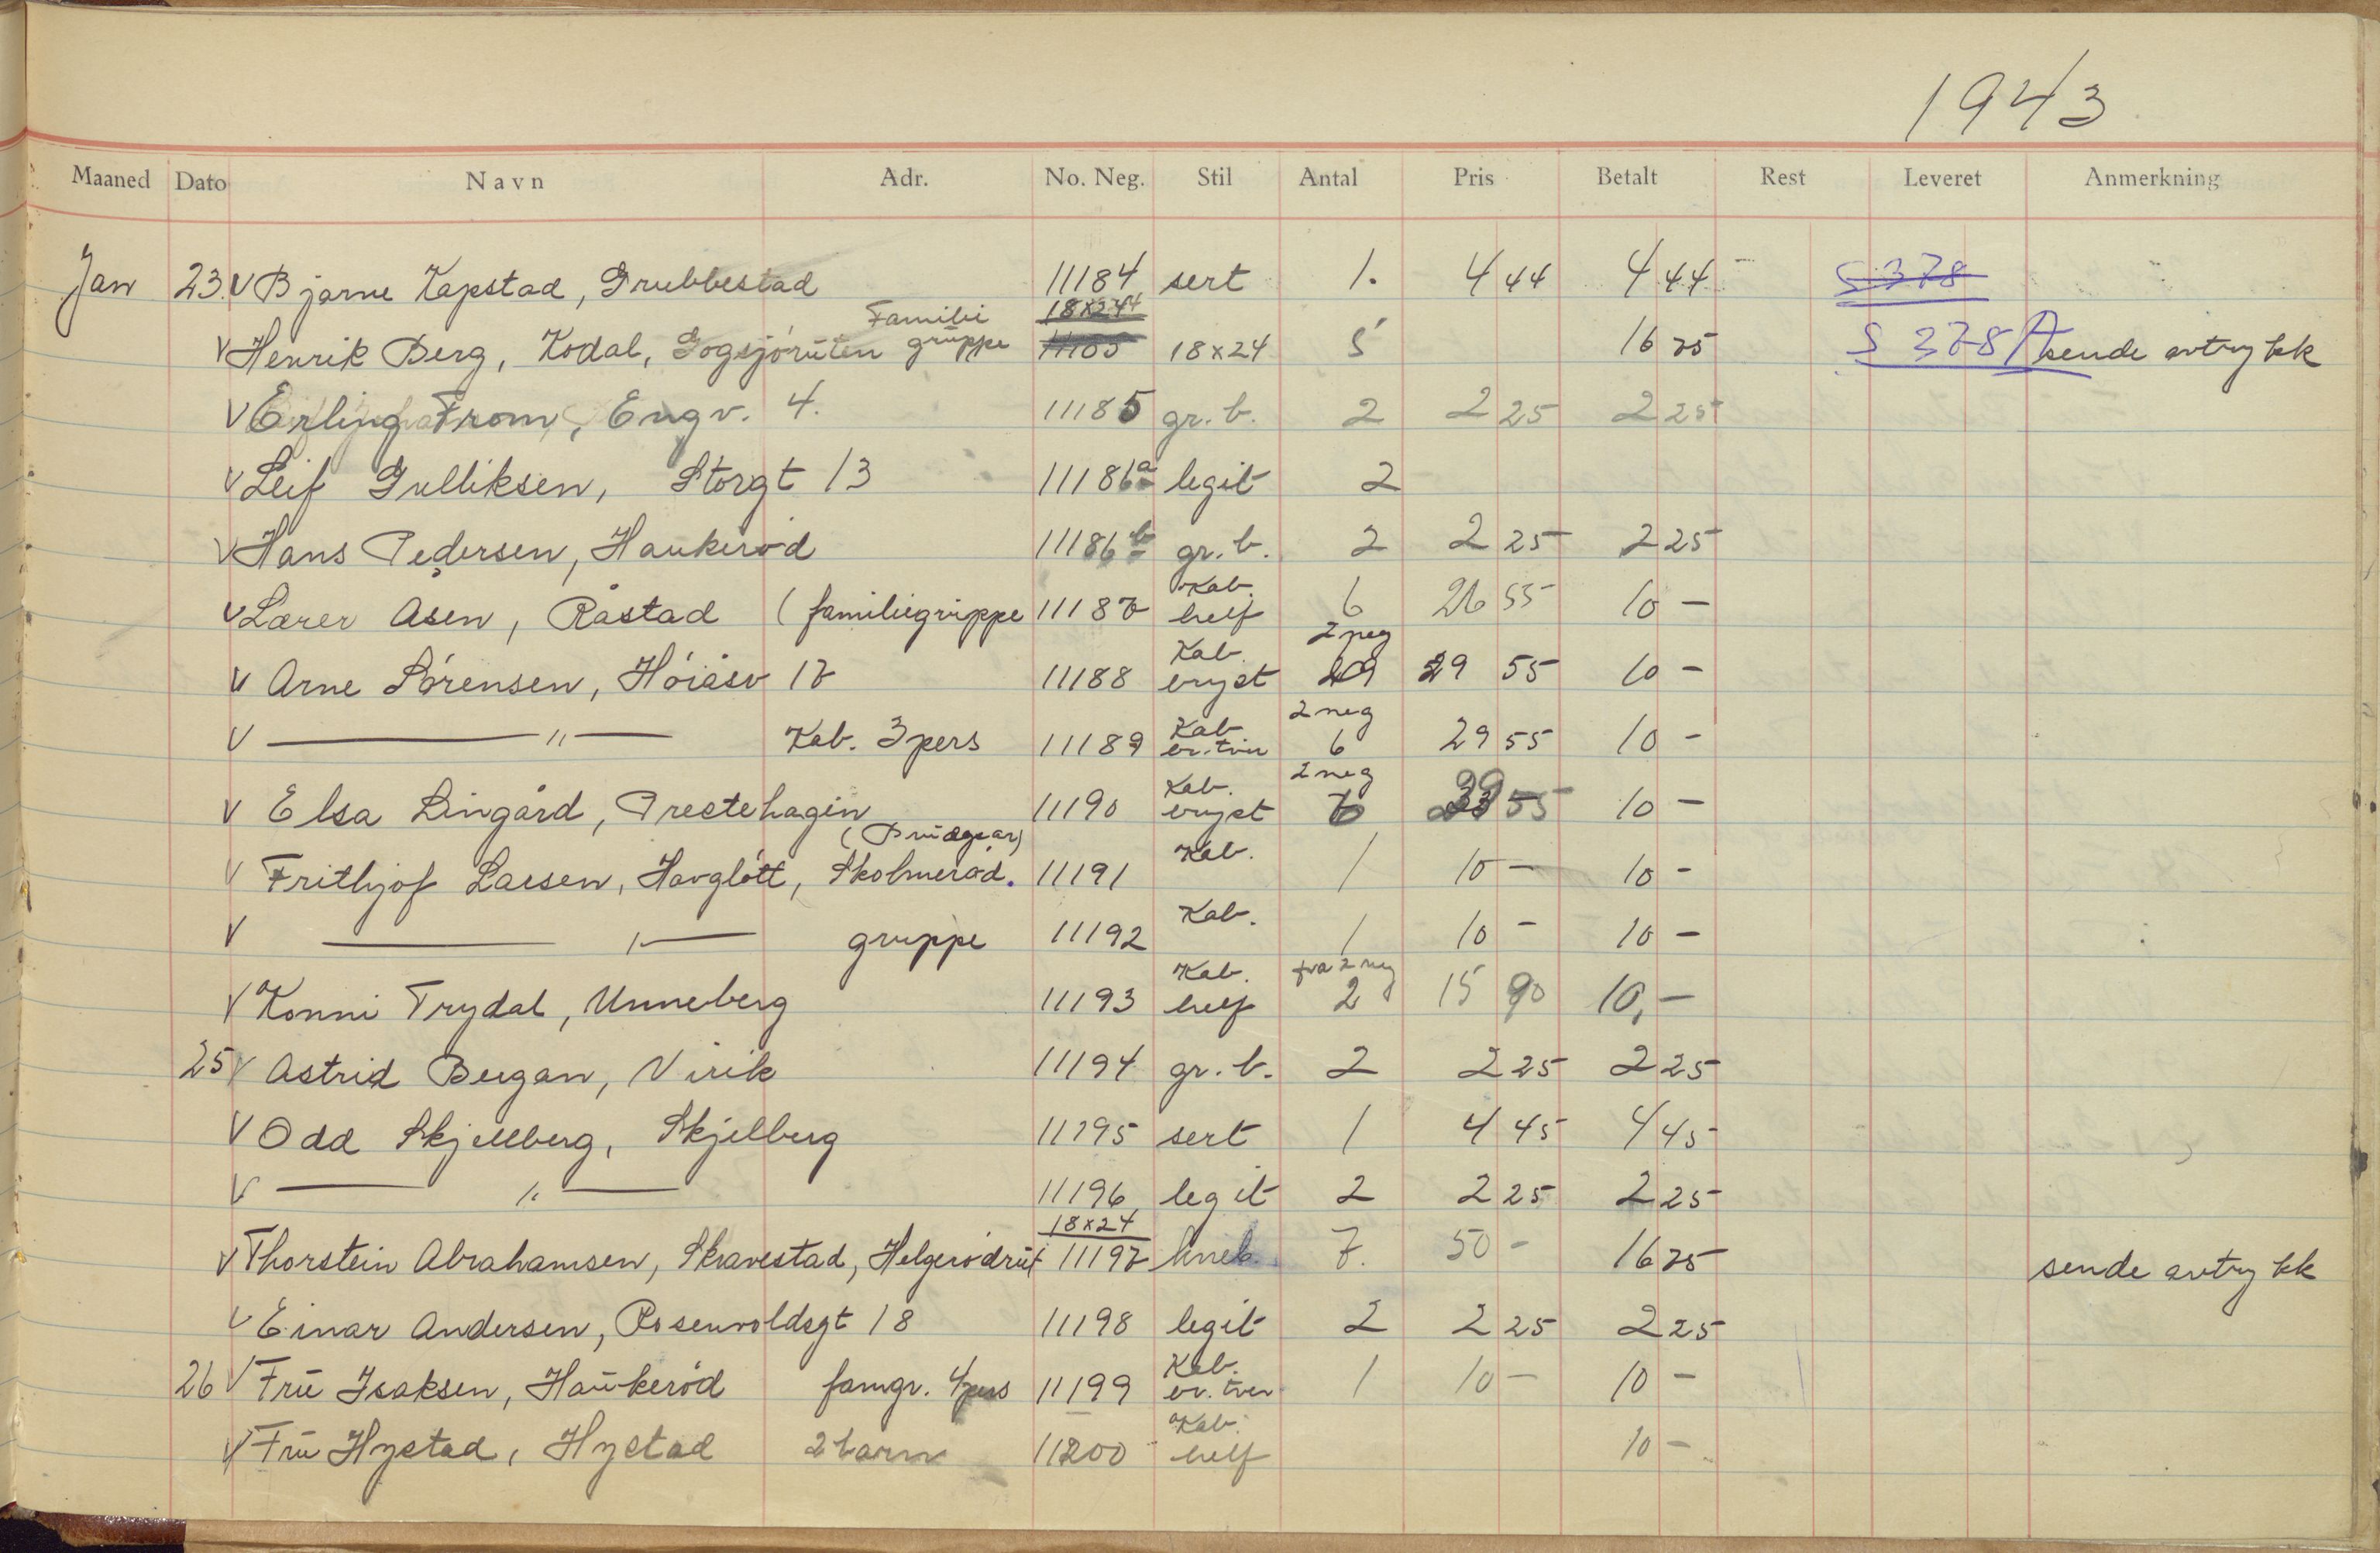 1943
Maaned Dato Navn Adr. No. Neg. Stil Antal Pris Betalt Rest Leveret Anmerkning
Jan 23. V Bjarne Kapstad, Grubbestad 11184 sert 1. 4 44 4 44 S 378
V Henrik Berg, Kodal, Gogsjøruten Familie gruppe 18x24 11185 18x24 5 16 75 S 378A sende avtrykk
V Erling From, Engv. 4. 11185 gr. b. 2 2 25 2 25
V Leif Gulliksen, Storgt 13 11186a legit 2
V Hans Pedersen, Haukerød 11186b gr. b. 2 2 25 2 25
V Lærer Åsen, Råstad (familiegruppe 11187 Kab. helf 6 26 55 10 -
V Arne Sørensen, Høiåsv 17 11188 Kab. bryst 2 neg 9 29 55 10 -
V — " — Kab. 3 pers 11189 Kab br. tver 2 neg 6 29 55 10 -
V Elsa Lingård, Prestehagen 11190 Kab. bryst 2 neg 6 39 55 10 -
V Frithjof Larsen, Havgløtt, Skolmerød. (Brudepar) 11191 Kab. 1 10 - 10 -
V — " — gruppe 11192 Kab. 1 10 - 10 -
V Konni Trydal, Unneberg 11193 Kab. helf fra 2 neg 2 15 90 10, -
25 V Astrid Bergan, Virik 11194 gr. b. 2 2 25 2 25
V Odd Skjellberg, Skjelberg 11195 sert 1 4 45 4 45
V — " — 11196 legit 2 2 25 2 25
V Thorstein Abrahamsen, Skravestad, Helgerødrut 18x24 11197 kneb. 7. 50 - 16 75 sende avtrykk
V Einar Andersen, Rosenvoldsgt 18 11198 legit 2 2 25 2 25
26 V Fru Isaksen, Haukerød famgr. 4 pers 11199 Kab. br. tver 1 10 - 10 -
V Fru Hystad, Hystad 2 barn 11200 Kab. helf 10 -